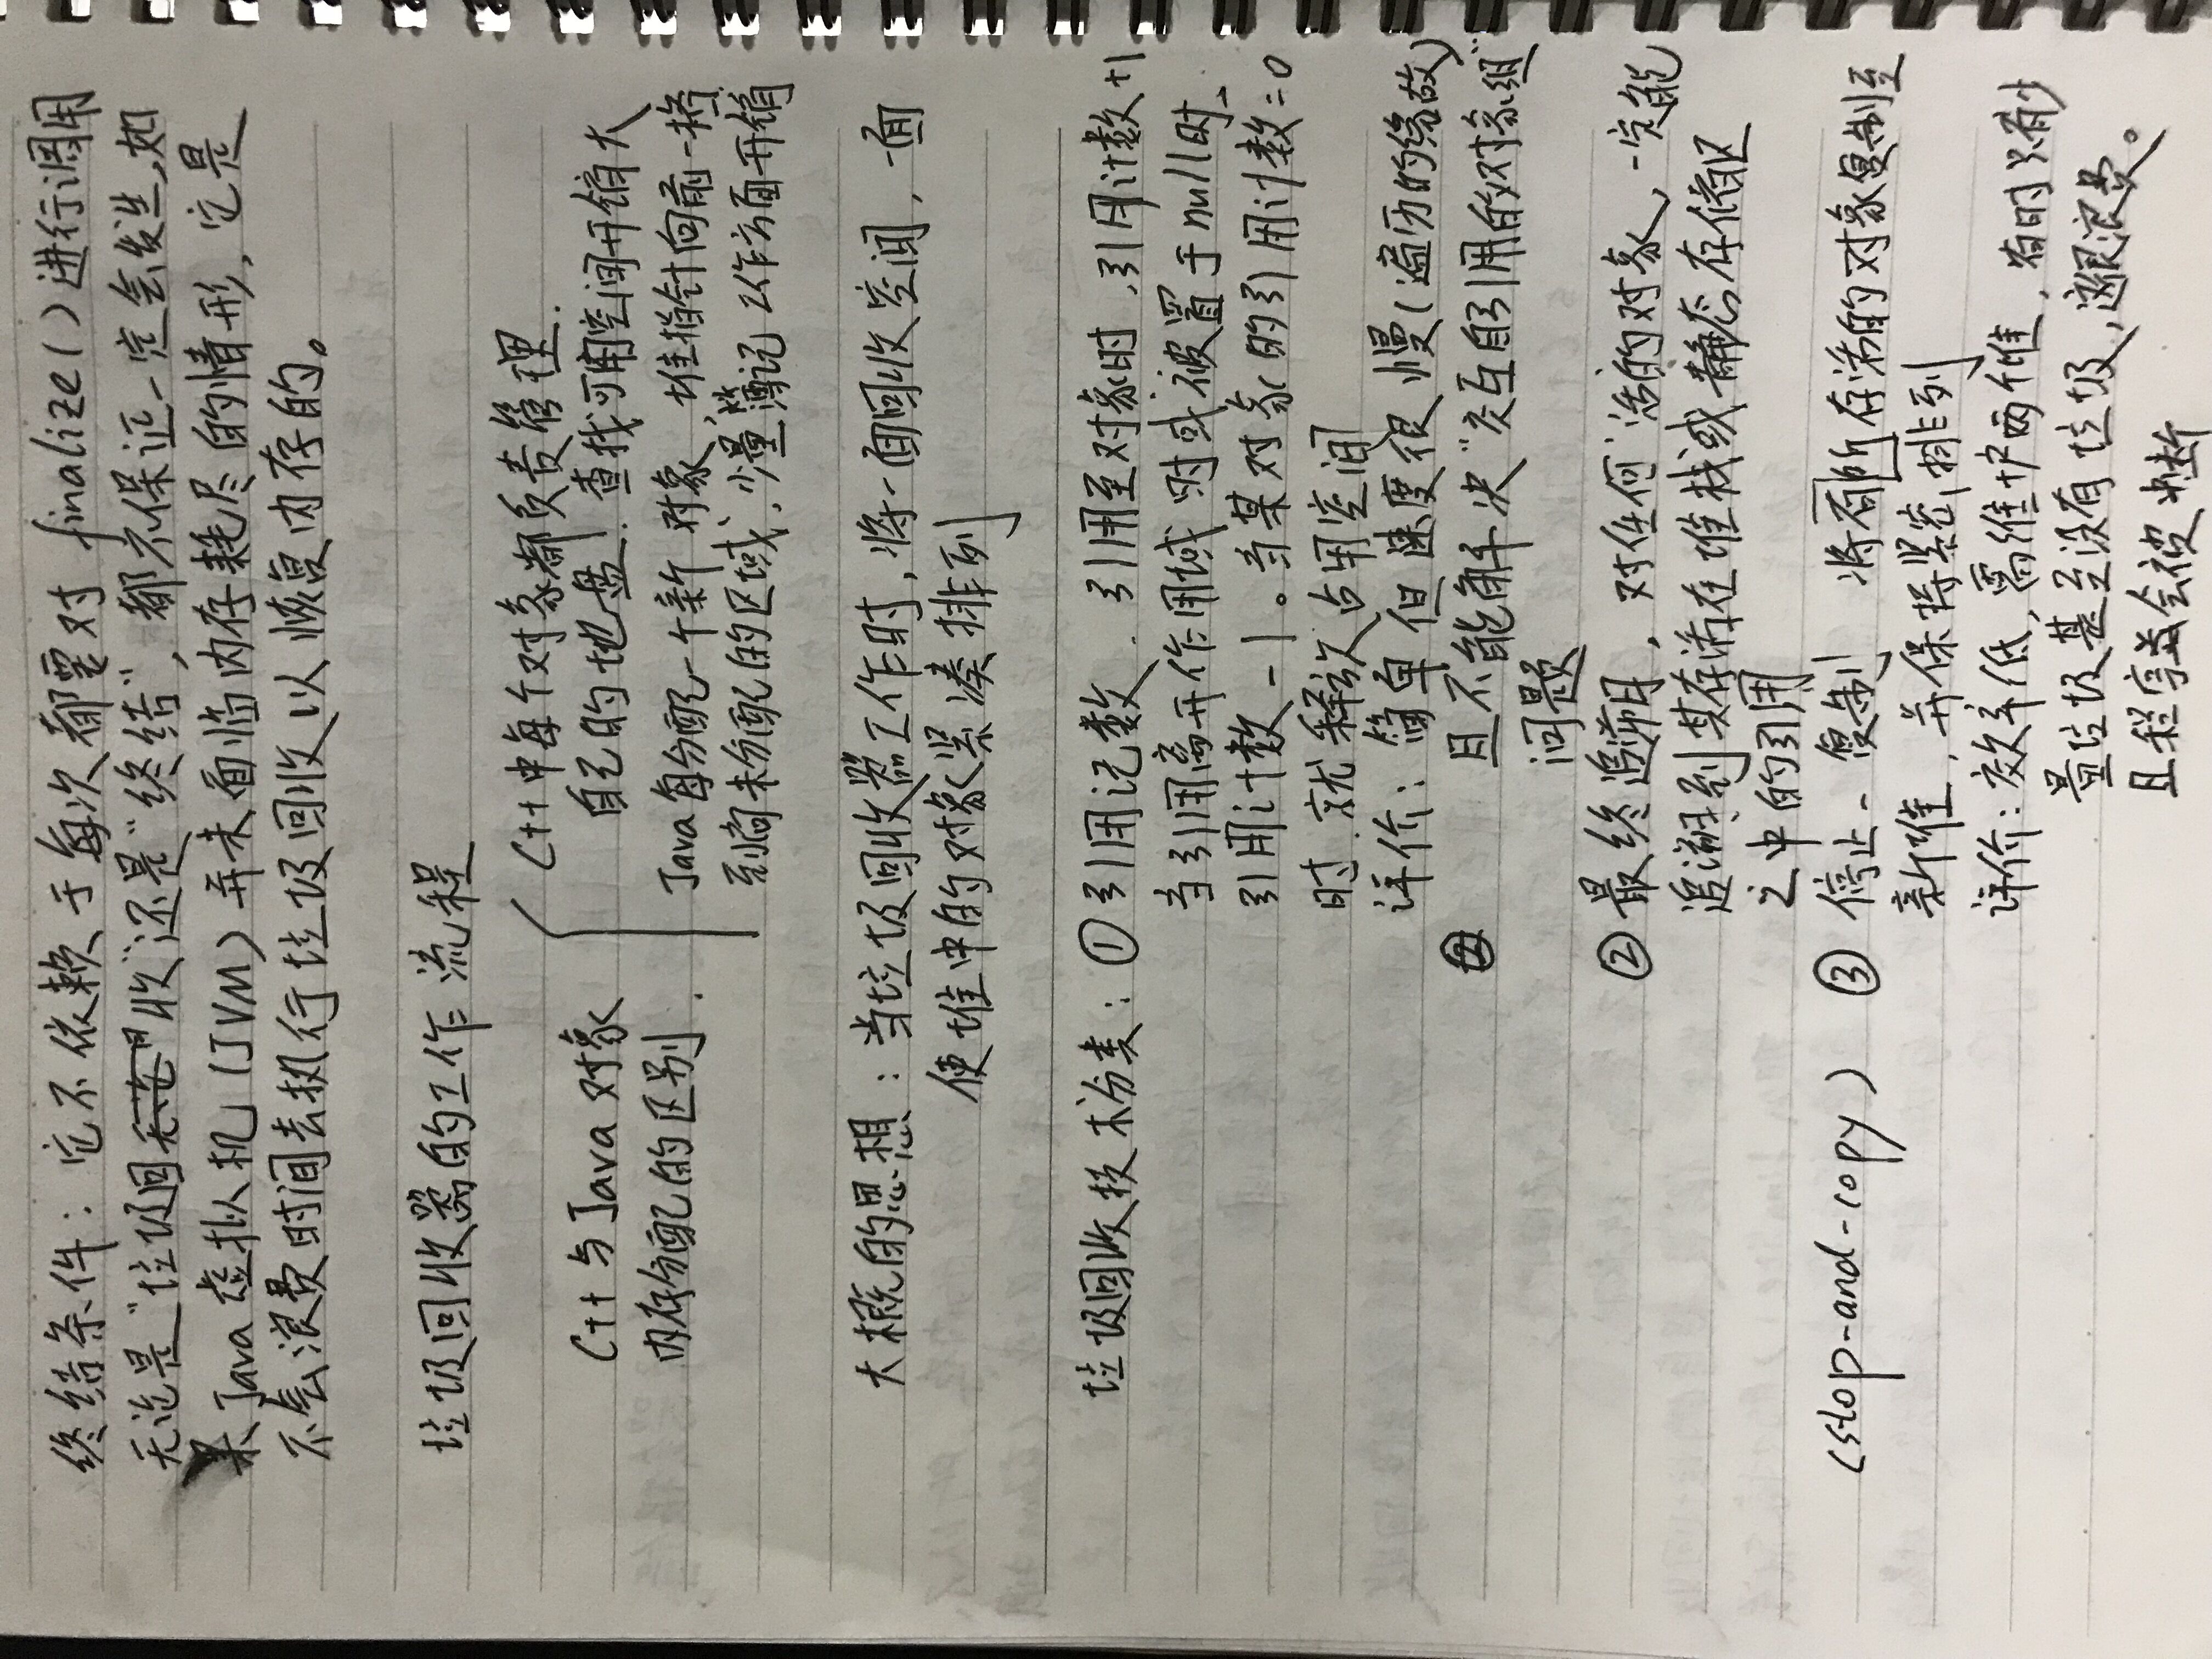 终结条件：它不依赖于每次都要对 finalize()进行调用
无论是“垃圾回收”还是“终结”，都不保证一定会发生，如
果Java虚拟机（JVM）并未面临内存耗尽的情形，它是
不会浪费时间去执行垃圾回收以恢复内存的。
垃圾回收器的工作流程
C++与Java对象
内存分配的区别.
C++中每个对象都负责管理.
自己的地盘. 查找可用空间开销大
Java每分配一个新对象，堆指针向前一格
到尚未分配的区域，少量簿记工作方面开销
大概的思想：当垃圾回收器工作时，将一面回收空间，一面
使堆中的对象紧凑排列
垃圾回收技术分类：① 引用记数. 引用至对象时，引用计数+1
当引用离开作用域时或被置于null时、
引用计数-1。当某对象的引用计数=0
时. 就释放占用空间
评价：简单但速度很慢（遍历的缘故）
且不能解决“交互自引用的对象组”
问题
② 最终追溯，对任何活的对象，一定能
追溯到其存活在堆栈或静态存储区
之中的引用
(stop-and-copy) ③ 停止-复制 将所有存活的对象复制至
新堆，并保持紧密排列
评价：效率低，需维护两个堆，有时只有少
量垃圾甚至没有垃圾，这很浪费。
且程序会被中断